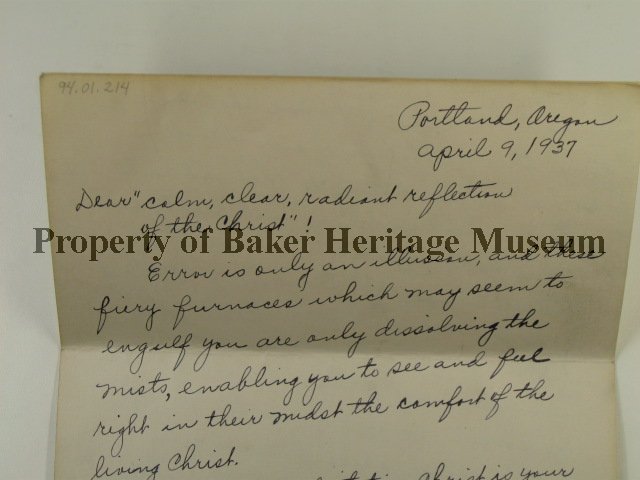 94.01.214
Portland, Oregon
April 9, 1937
Dear "calm, clear, radiant reflection
of the Christ"!
Property of Baker Heritage Museum
Error is only an illusion, and these
fiery furnaces which may seem to
engulf you are only dissolving the
mists, enabling you to see and feel
right in their midst the comfort of the
living Christ.
Christ is your